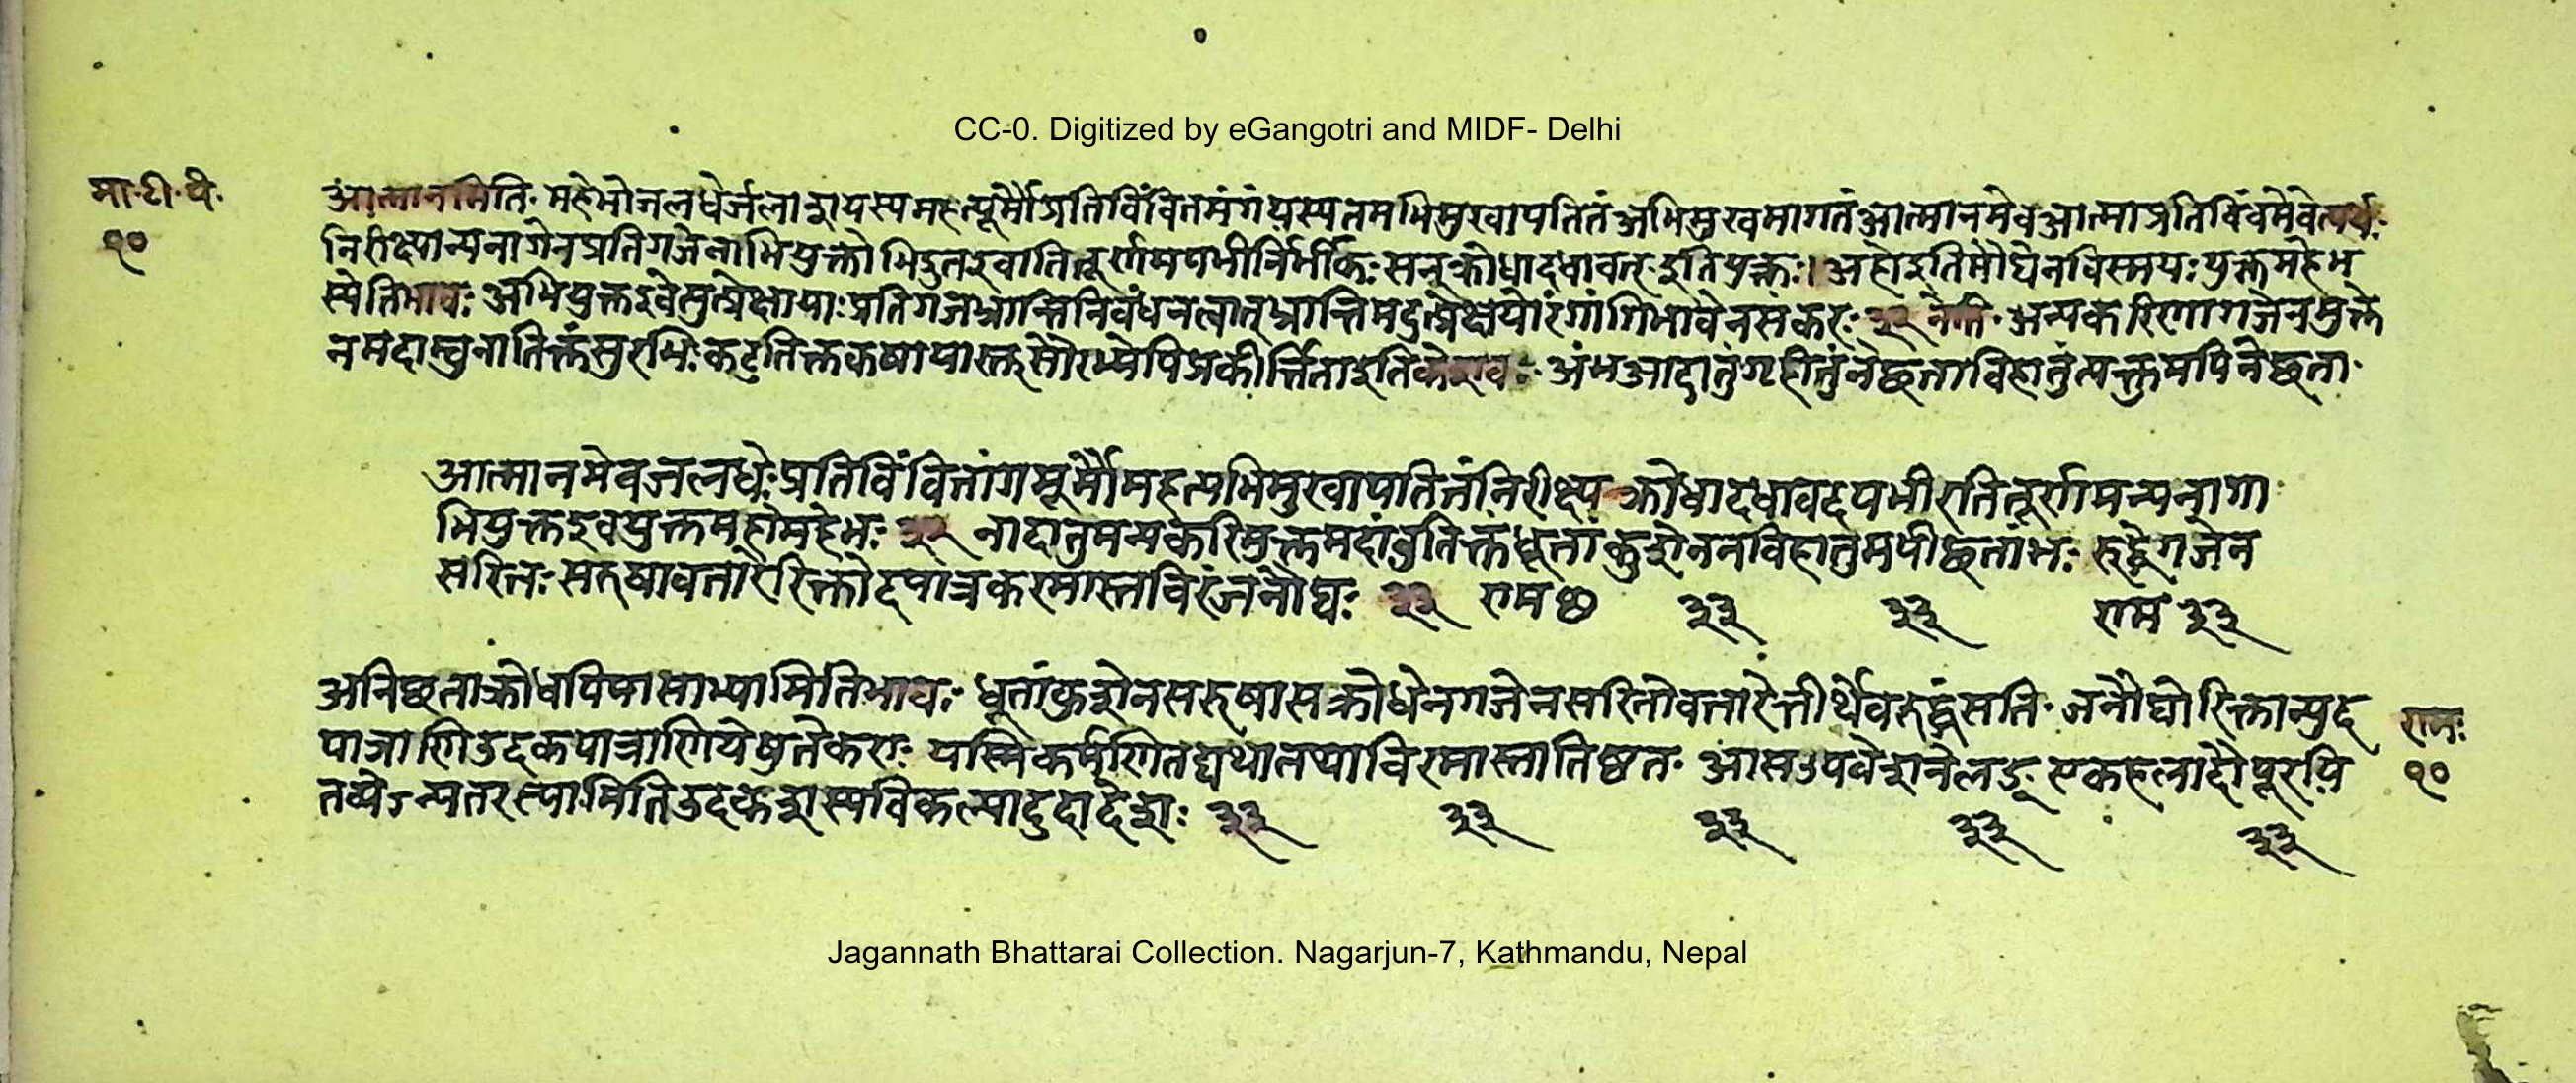 CC-0. Digitized by eGangotri and MIDF- Delhi
मा·टी·पं·
१०
आत्मानमिति· महेभोजलधेर्जलाशयस्यमहत्पूर्मौप्रतिविंवितमंगंयस्यतमभिमुखापतितंअभिमुखमागतंआत्मानमेवआत्माप्रतिविंवमेवेत्यर्थः
निरीक्ष्यान्यनागेनप्रतिगजेनाभियुक्तोभिद्रुतइवातितूर्णमपभीर्निर्भीकः सन्क्रोधादधावत्· इतिप्रक्तः। अहोइतिमौढ्येनविस्मयः युक्तमहेभ
स्येतिभावः अभियुक्तइवेत्युत्प्रेक्षायाः प्रतिगजभ्रान्तिनिवंधनत्वात्भ्रान्तिमदुत्प्रेक्षयोरंगांगिभावेनसंकरः ३२ नेति· अन्यकरिणागजेनमुक्ते
नमदाम्बुनातिक्तंसुरभिः कटुतिक्तकषायास्तुसौरभ्येपिप्रकीर्त्तिताइतिकेशवः अंभआदातुंगृहीतुंनेछताविहातुंत्यक्तुमपिनेछता·
आत्मानमेवजलधेः प्रतिविंवितांगमूर्मौमहत्यभिमुखापतितंनिरीक्ष्य क्रोधादधावदपभीरतितूर्णमन्यनागा
भियुक्तइवयुक्तमहोमहेभः ३२ नादातुमन्यकरिमुक्तमदांवुतिक्तंधूतांकुशेननविहातुमपीछतांभः रुद्धेगजेन
सरितः सरुषावतारेरिक्तोदपात्रकरमास्तविरंजनौघः ३३ राम छ ३३ ३३ राम ३३
अनिछताक्रोधपिपासाभ्यामितिभावः धूतांकुशेनसरुषासक्रोधेनगजेनसरितोवतारेतीर्थेवरुद्धेसति· जनौघोरिक्तान्युद
पात्राणिउदकपात्राणियेषुतेकराः यस्मिकर्मणितद्यथातथाविरमास्तातिष्ठत· आसउपवेशनेलङ् एकहलादौपूरयि
तव्येऽन्यतरस्यामितिउदकशस्यविकल्पादुदादेशः ३३ ३३ ३३ ३३ ३३
रामः
१०
Jagannath Bhattarai Collection. Nagarjun-7, Kathmandu, Nepal